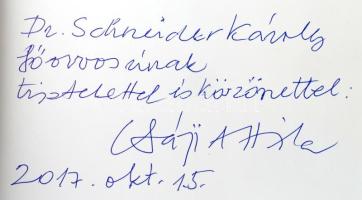 Dr. Schneider Károly
főorvos úrnak
tisztelettel és köszönettel:
Attila
2017. okt. 15.